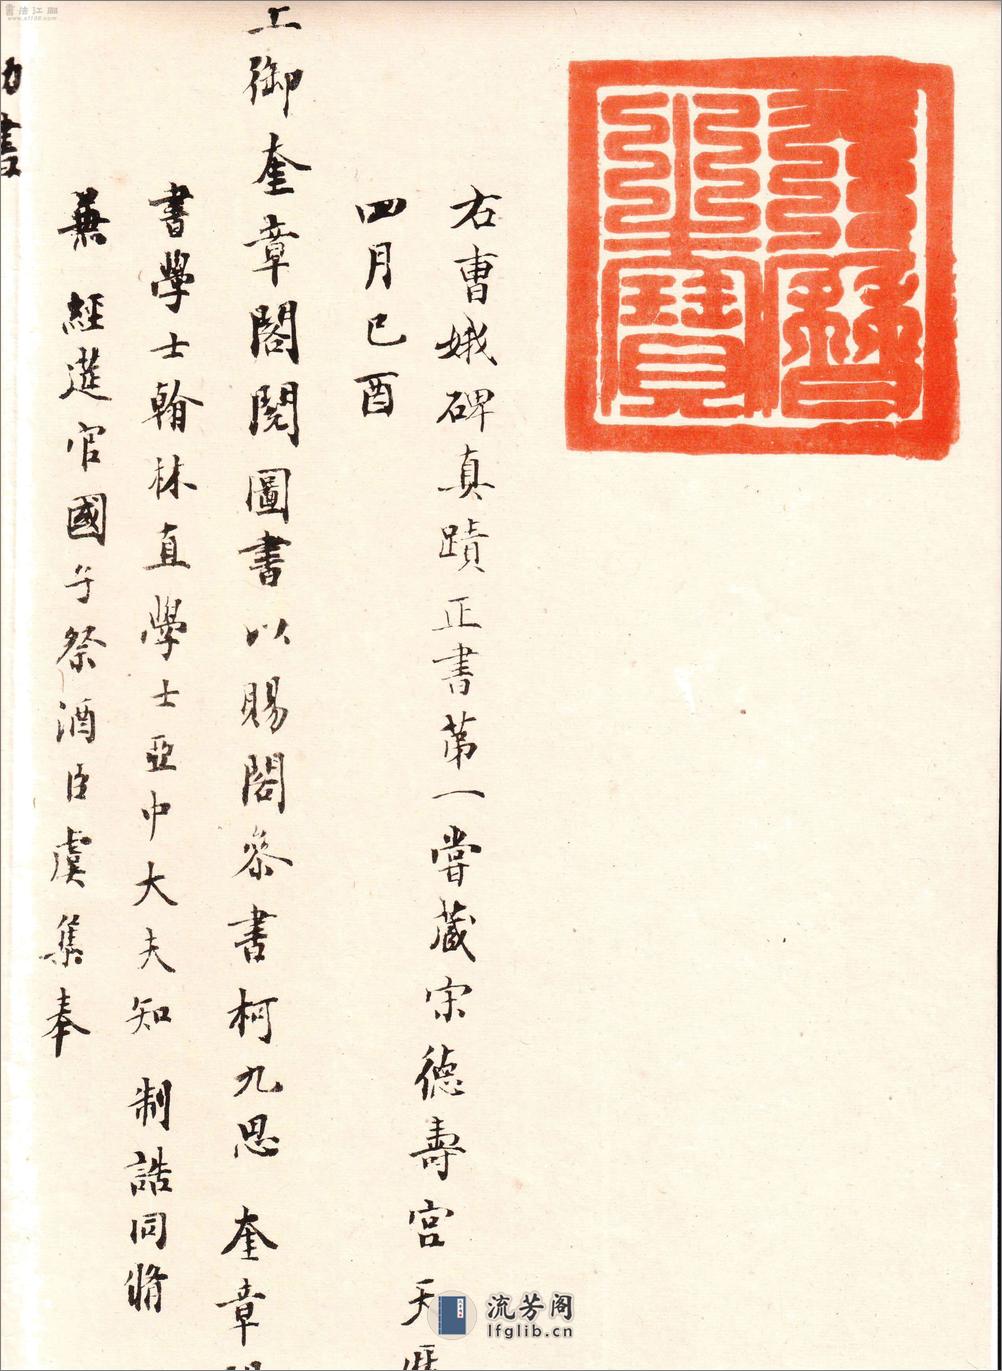 天曆之寶
右曺娥碑真蹟正書第一嘗藏宋德壽宮天曆
四月己酉
上御奎章閣閱圖書以賜閣叅書柯九思奎章閣
書學士翰林直學士亞中大夫知制誥同脩
兼經筵官國子祭酒臣虞集奉
勑書
流芳阁
lfglib.cn
書法江湖
www.sf108.com